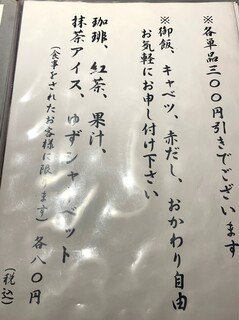 ※各単品三〇〇円引きでございます
※御飯、キャベツ、赤だし、おかわり自由
お気軽にお申し付け下さい
珈琲、紅茶、果汁、
抹茶アイス、ゆずシャーベット
(食事をされたお客様に限ります)各八〇円
(税込)